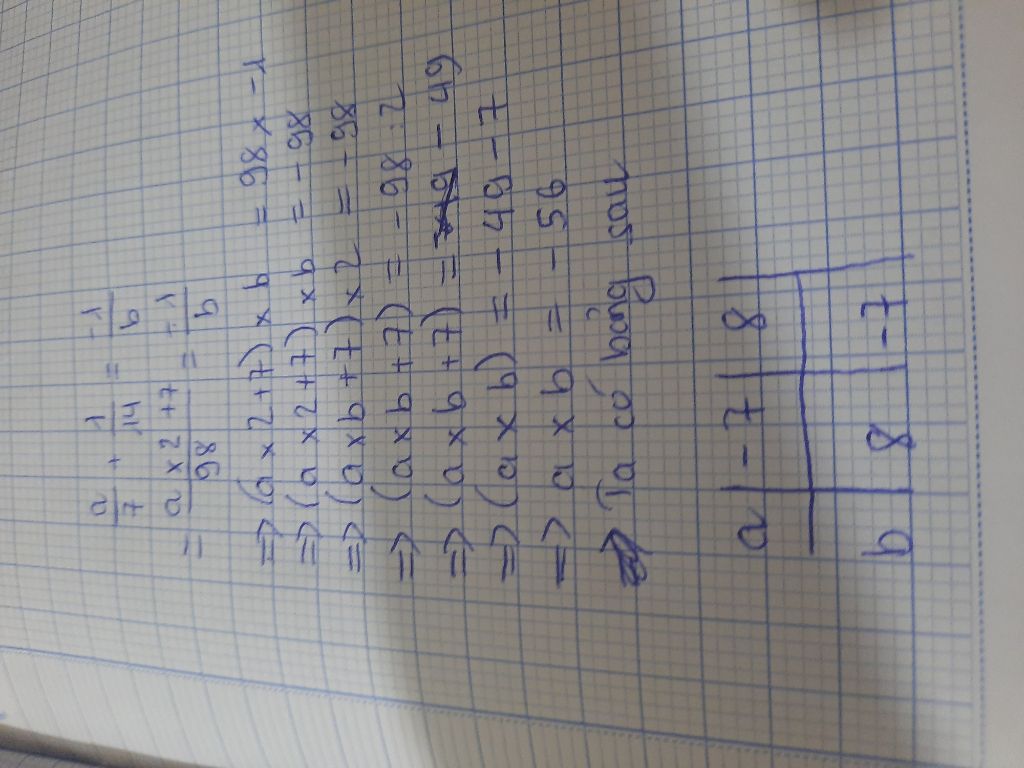 a/7 + 1/14 = -1/b
= a x 2 + 7/98 = -1/b
=> (a x 2 + 7) x b = 98 x -1
=> (a x 2 + 7) x b = -98
=> (a x b + 7) x 2 = -98
=> (a x b + 7) = -98 : 2
=> (a x b + 7) = -49
=> (a x b) = -49 - 7
=> a x b = -56
Ta có bảng sau
a | -7 | 8
b | 8 | -7